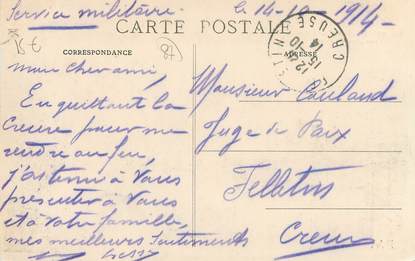 Service militaire.
Le 14-10-1914-
CARTE POSTALE
15€
(87)
CORRESPONDANCE
ADRESSE
CREUSE
15-10
14
mon cher ami,
En quittant la
Creuse pour me
rendre au feu,
j'ai tenu à vous
présenter à vous
et à votre famille
mes meilleurs sentiments
Monsieur
Juge de Paix
Felletin
Creuse